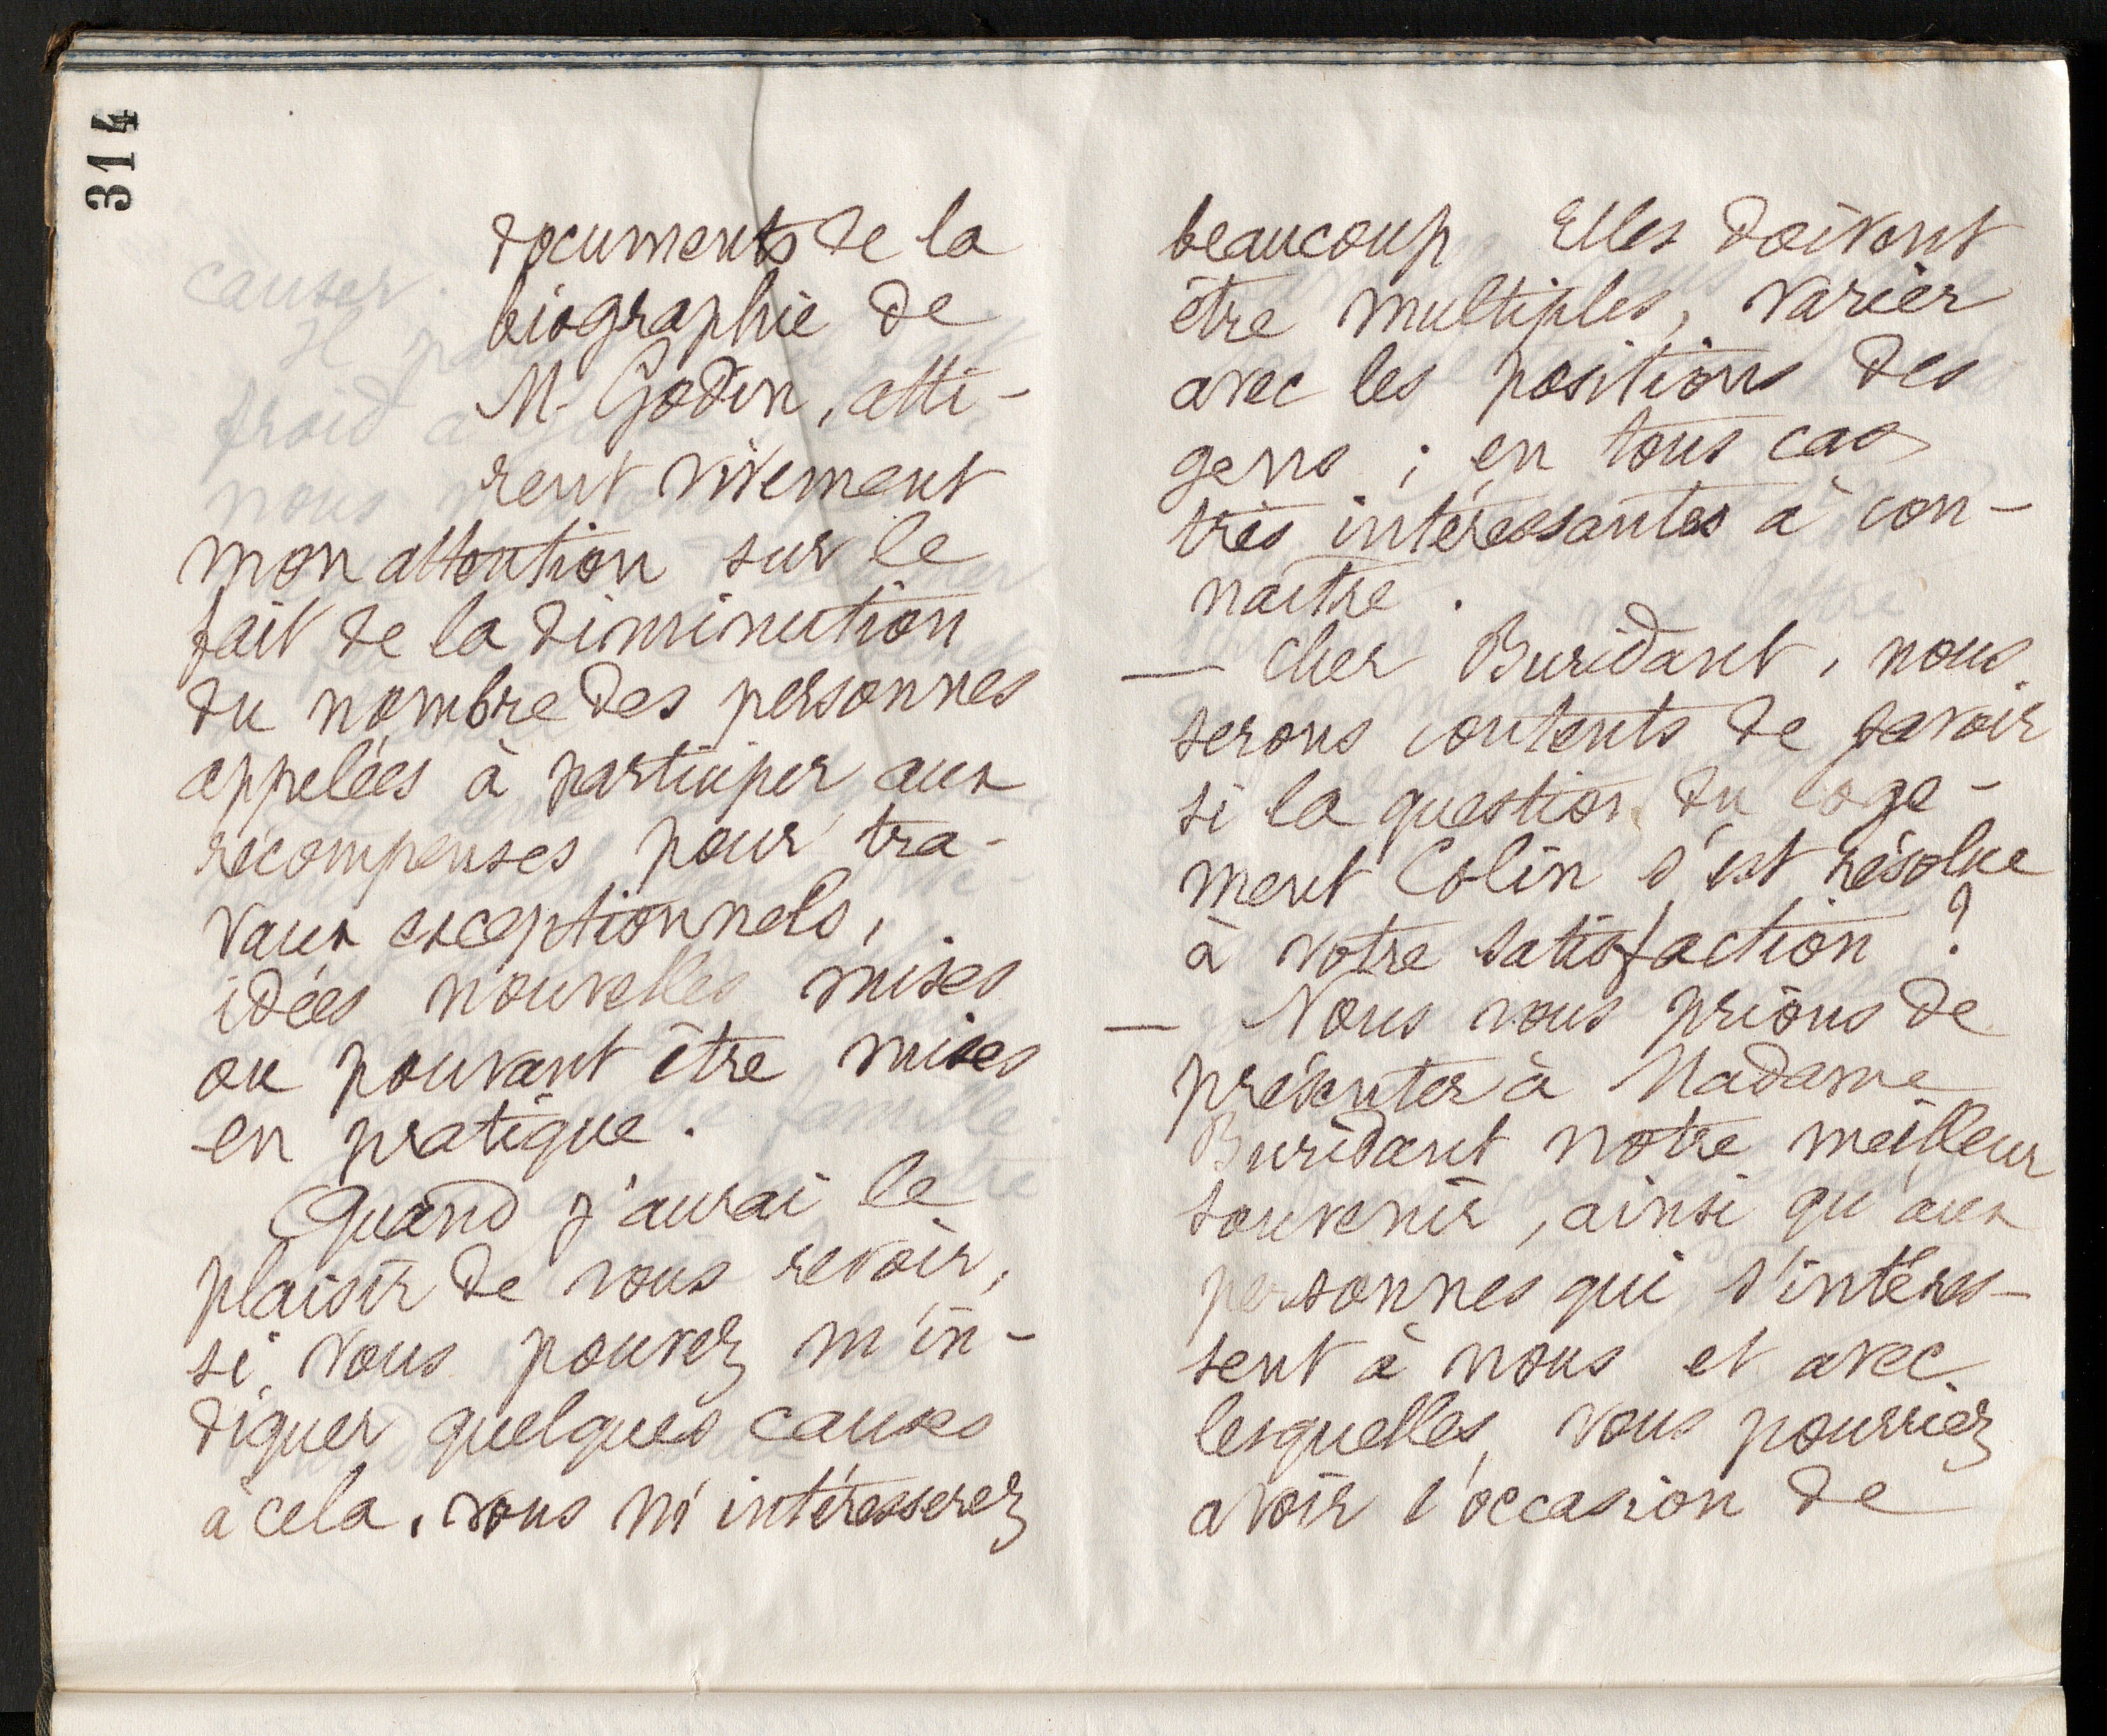 314
documents de la
biographie de
M. Godin, atti-
rent vivement
mon attention sur le
fait de la diminution
du nombre des personnes
appelées à participer aux
récompenses pour tra-
vaux exceptionnels,
idées nouvelles mises
ou pouvant être mises
en pratique.
Quand j'aurai le
plaisir de vous revoir,
si vous pouvez m'in-
diquer quelques causes
à cela, vous m'intéresserez
beaucoup Elles doivent
être multiples, varier
avec les positions des
gens ; en tous cas
très intéressantes à con-
naitre.
— Cher Buridant, nous
serons contents de savoir
si la question du loge-
ment Colin s'est résolue
à votre satisfaction ?
— Nous vous prions de
présenter à Madame
Buridant notre meilleur
souvenir, ainsi qu'aux
personnes qui s'intéres-
sent à nous et avec
lesquelles vous pourriez
avoir l'occasion de